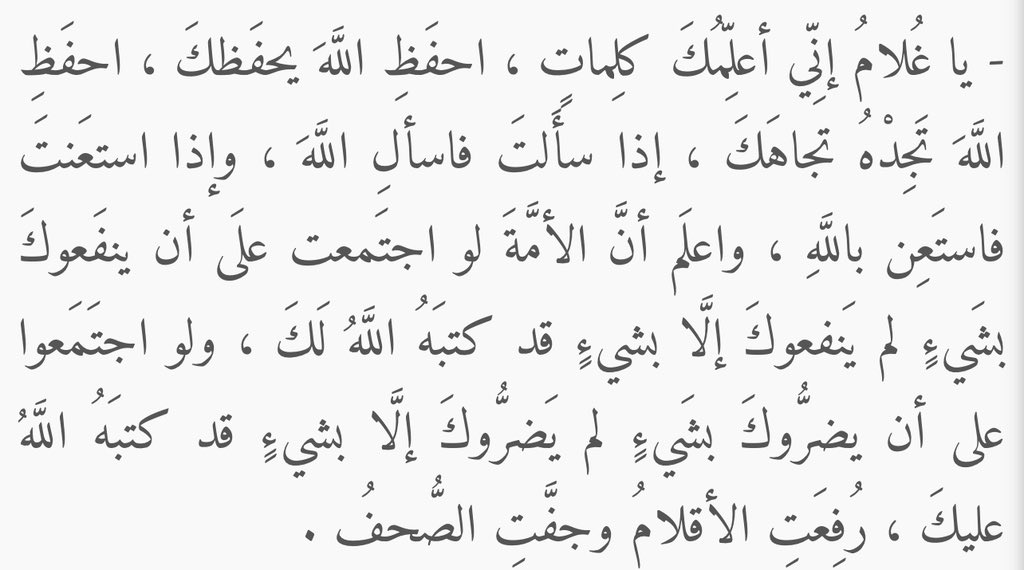 - يا غُلامُ إنِّي أعلِّمُكَ كلِماتٍ ، احفَظِ اللَّهَ يحفَظكَ ، احفَظِ
اللَّهَ تَجِدْهُ تجاهَكَ ، إذا سأَلتَ فاسألِ اللَّهَ ، وإذا استعَنتَ
فاستَعِن باللَّهِ ، واعلَم أنَّ الأمَّةَ لو اجتَمعت علَى أن ينفَعوكَ
بشَيءٍ لم يَنفعوكَ إلَّا بشيءٍ قد كتبَهُ اللَّهُ لَكَ ، ولو اجتَمَعوا
على أن يضرُّوكَ بشَيءٍ لم يَضرُّوكَ إلَّا بشيءٍ قد كتبَهُ اللَّهُ
عليكَ ، رُفِعَتِ الأقلامُ وجفَّتِ الصُّحفُ .